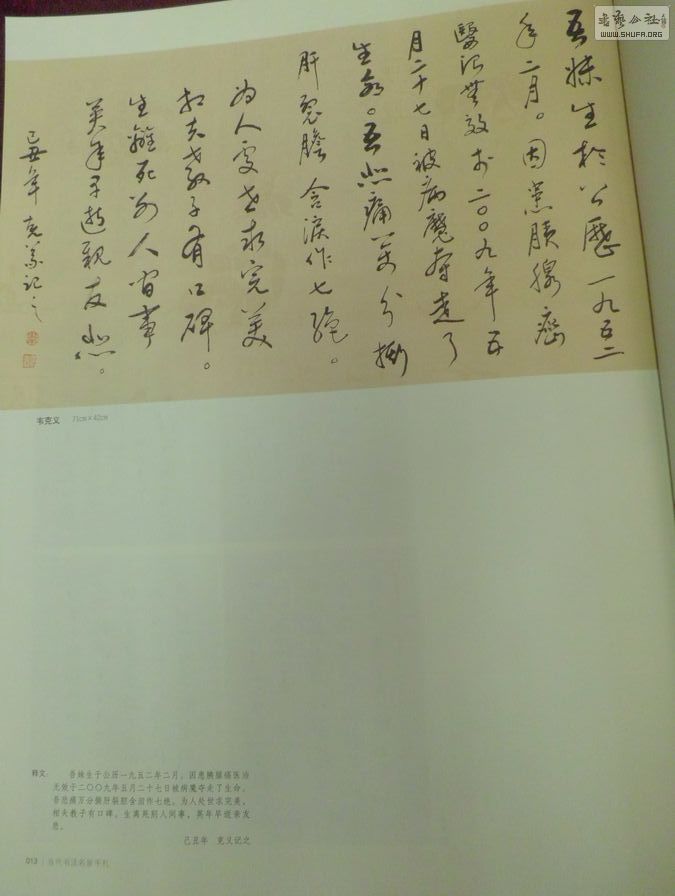 書藝公社
WWW.SHUFA.ORG
吾妹生於公歷一九五二
年二月。因患胰腺癌
醫治無效於二〇〇九年五
月二十七日被病魔奪走了
生命。吾悲痛萬分撕
肝裂膽含淚作七絕。
为人處世求完美
相夫教子有口碑。
生離死別人间事
英年早逝親友悲。
己丑年 克義記之
韦克义 71cm×42cm
释文:
吾妹生于公历一九五二年二月。因患胰腺癌医治
无效于二〇〇九年五月二十七日被病魔夺走了生命。
吾悲痛万分撕肝裂胆含泪作七绝。为人处世求完美,
相夫教子有口碑。生离死别人间事,英年早逝亲友
悲。
己丑年 克义记之
013 | 当代书法名家手札